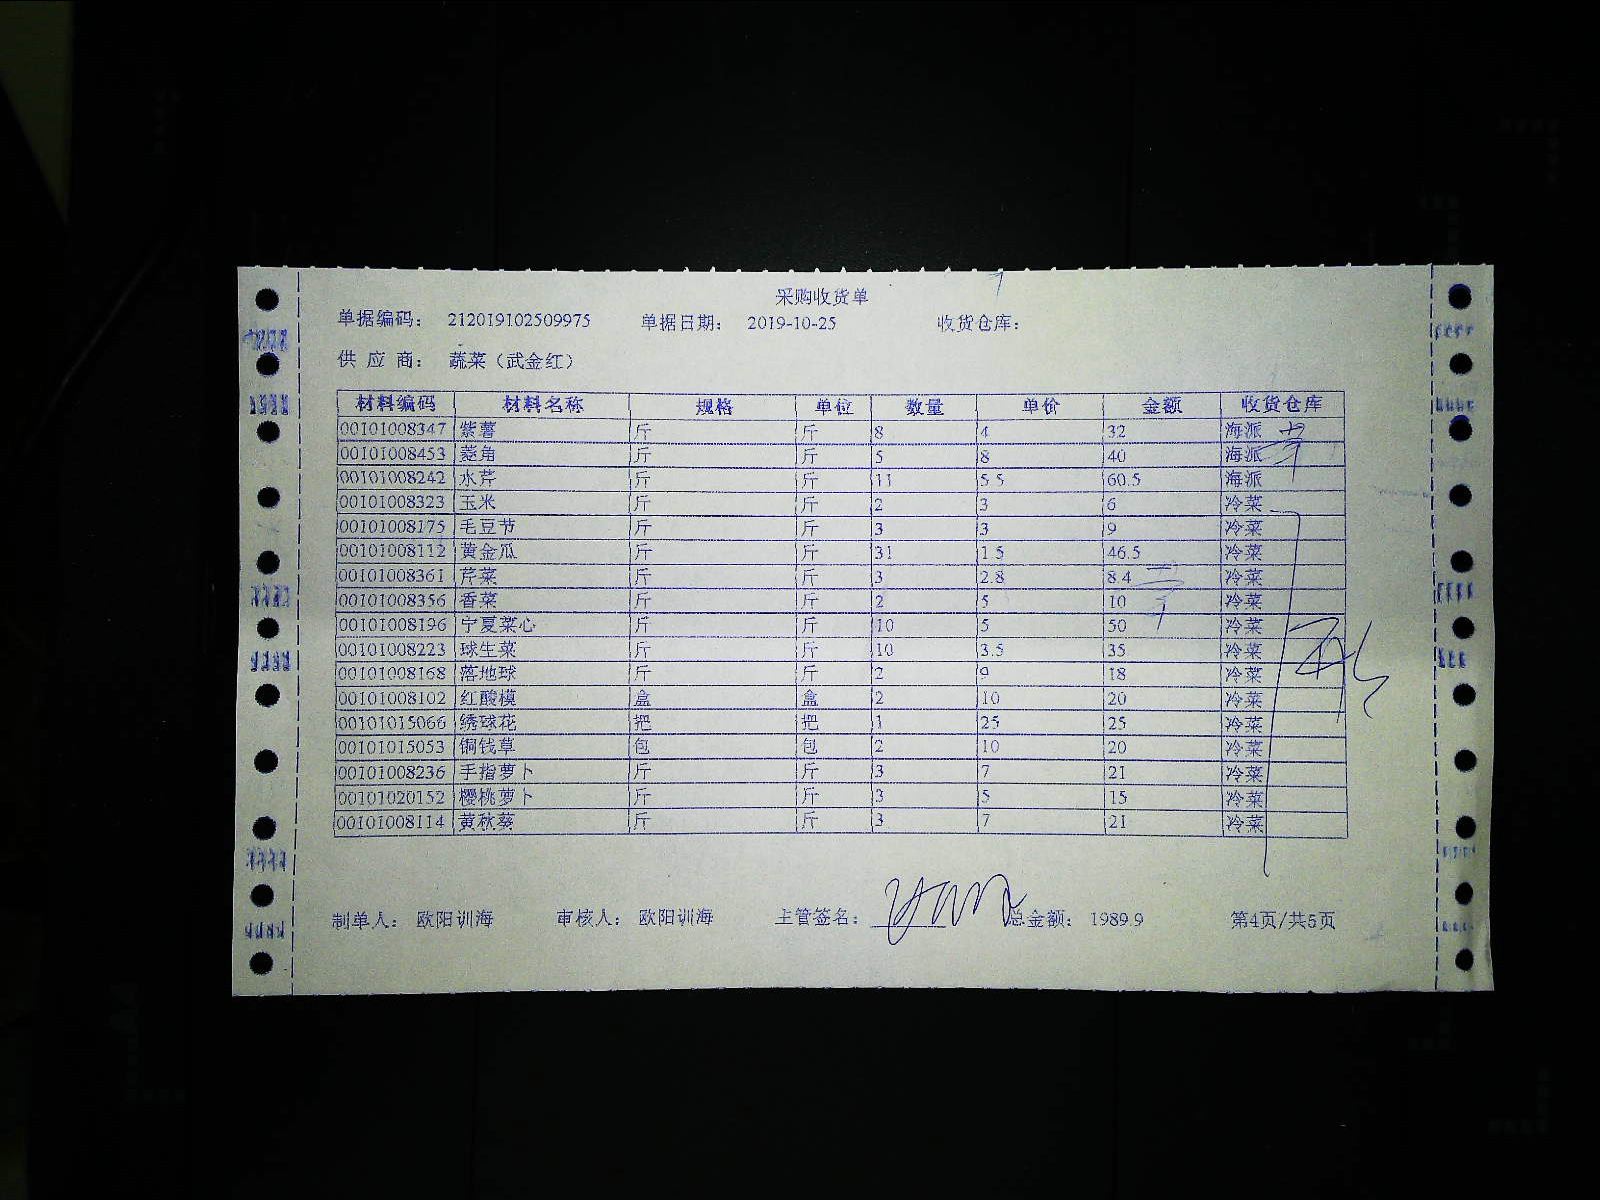 采购收货单
单据编码： 212019102509975 单据日期： 2019-10-25 收货仓库：
供 应 商： 蔬菜（武金红）
材料编码 材料名称 规格 单位 数量 单价 金额 收货仓库
00101008347 紫薯 斤 斤 8 4 32 海派
00101008453 菱角 斤 斤 5 8 40 海派
00101008242 水芹 斤 斤 11 5.5 60.5 海派
00101008323 玉米 斤 斤 2 3 6 冷菜
00101008175 毛豆节 斤 斤 3 3 9 冷菜
00101008112 黄金瓜 斤 斤 31 1.5 46.5 冷菜
00101008361 芹菜 斤 斤 3 2.8 8.4 冷菜
00101008356 香菜 斤 斤 2 5 10 冷菜
00101008196 宁夏菜心 斤 斤 10 5 50 冷菜
00101008223 球生菜 斤 斤 10 3.5 35 冷菜
00101008168 落地球 斤 斤 2 9 18 冷菜
00101008102 红酸模 盒 盒 2 10 20 冷菜
00101015066 绣球花 把 把 1 25 25 冷菜
00101015053 铜钱草 包 包 2 10 20 冷菜
00101008236 手指萝卜 斤 斤 3 7 21 冷菜
00101020152 樱桃萝卜 斤 斤 3 5 15 冷菜
00101008114 黄秋葵 斤 斤 3 7 21 冷菜
制单人： 欧阳训海 审核人： 欧阳训海 主管签名： 总金额： 1989.9 第4页/共5页